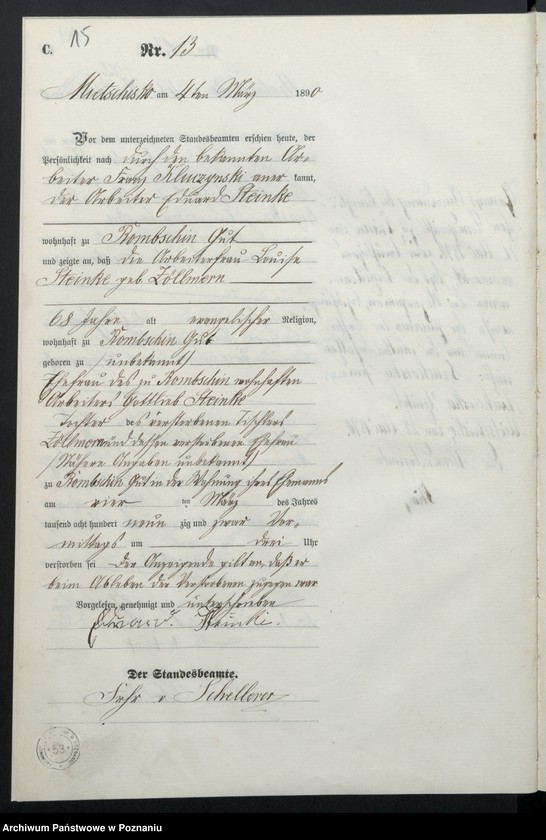 C. 15 Nr. 13
Mietschisko am 4ten März 1890
Vor dem unterzeichneten Standesbeamten erschien heute, der
Persönlichkeit nach durch den bekannten Ar-
beiter Franz Kluczynski aner kannt,
der Arbeiter Eduard Steinke
wohnhaft zu Rombschin Gut
und zeigte an, daß die Arbeiterfrau Louise
Steinke geb. Zöllmern
68 Jahre alt evangelischer Religion,
wohnhaft zu Rombschin Gut
geboren zu /unbekannt/
Ehefrau des zu Rombschin wohnhaften
Arbeiters Gottlieb Steinke
Tochter des verstorbenen Tischlers
Zöllmern und dessen verstorbene Ehefrau
/Nähere Angaben unbekannt/
zu Rombschin Gut in der Wohnung ihres Ehemanns
am vier ten März des Jahres
tausend acht hundert neun zig und zwar Vor-
mittags um drei Uhr
verstorben sei der Anzeigende daß er
beim Ableben der Verstorbenen zugegen war
Vorgelesen, genehmigt und unterschrieben
Eduard Steinki.
Der Standesbeamte.
Frhr v Schellerer
53
Archiwum Państwowe w Poznaniu